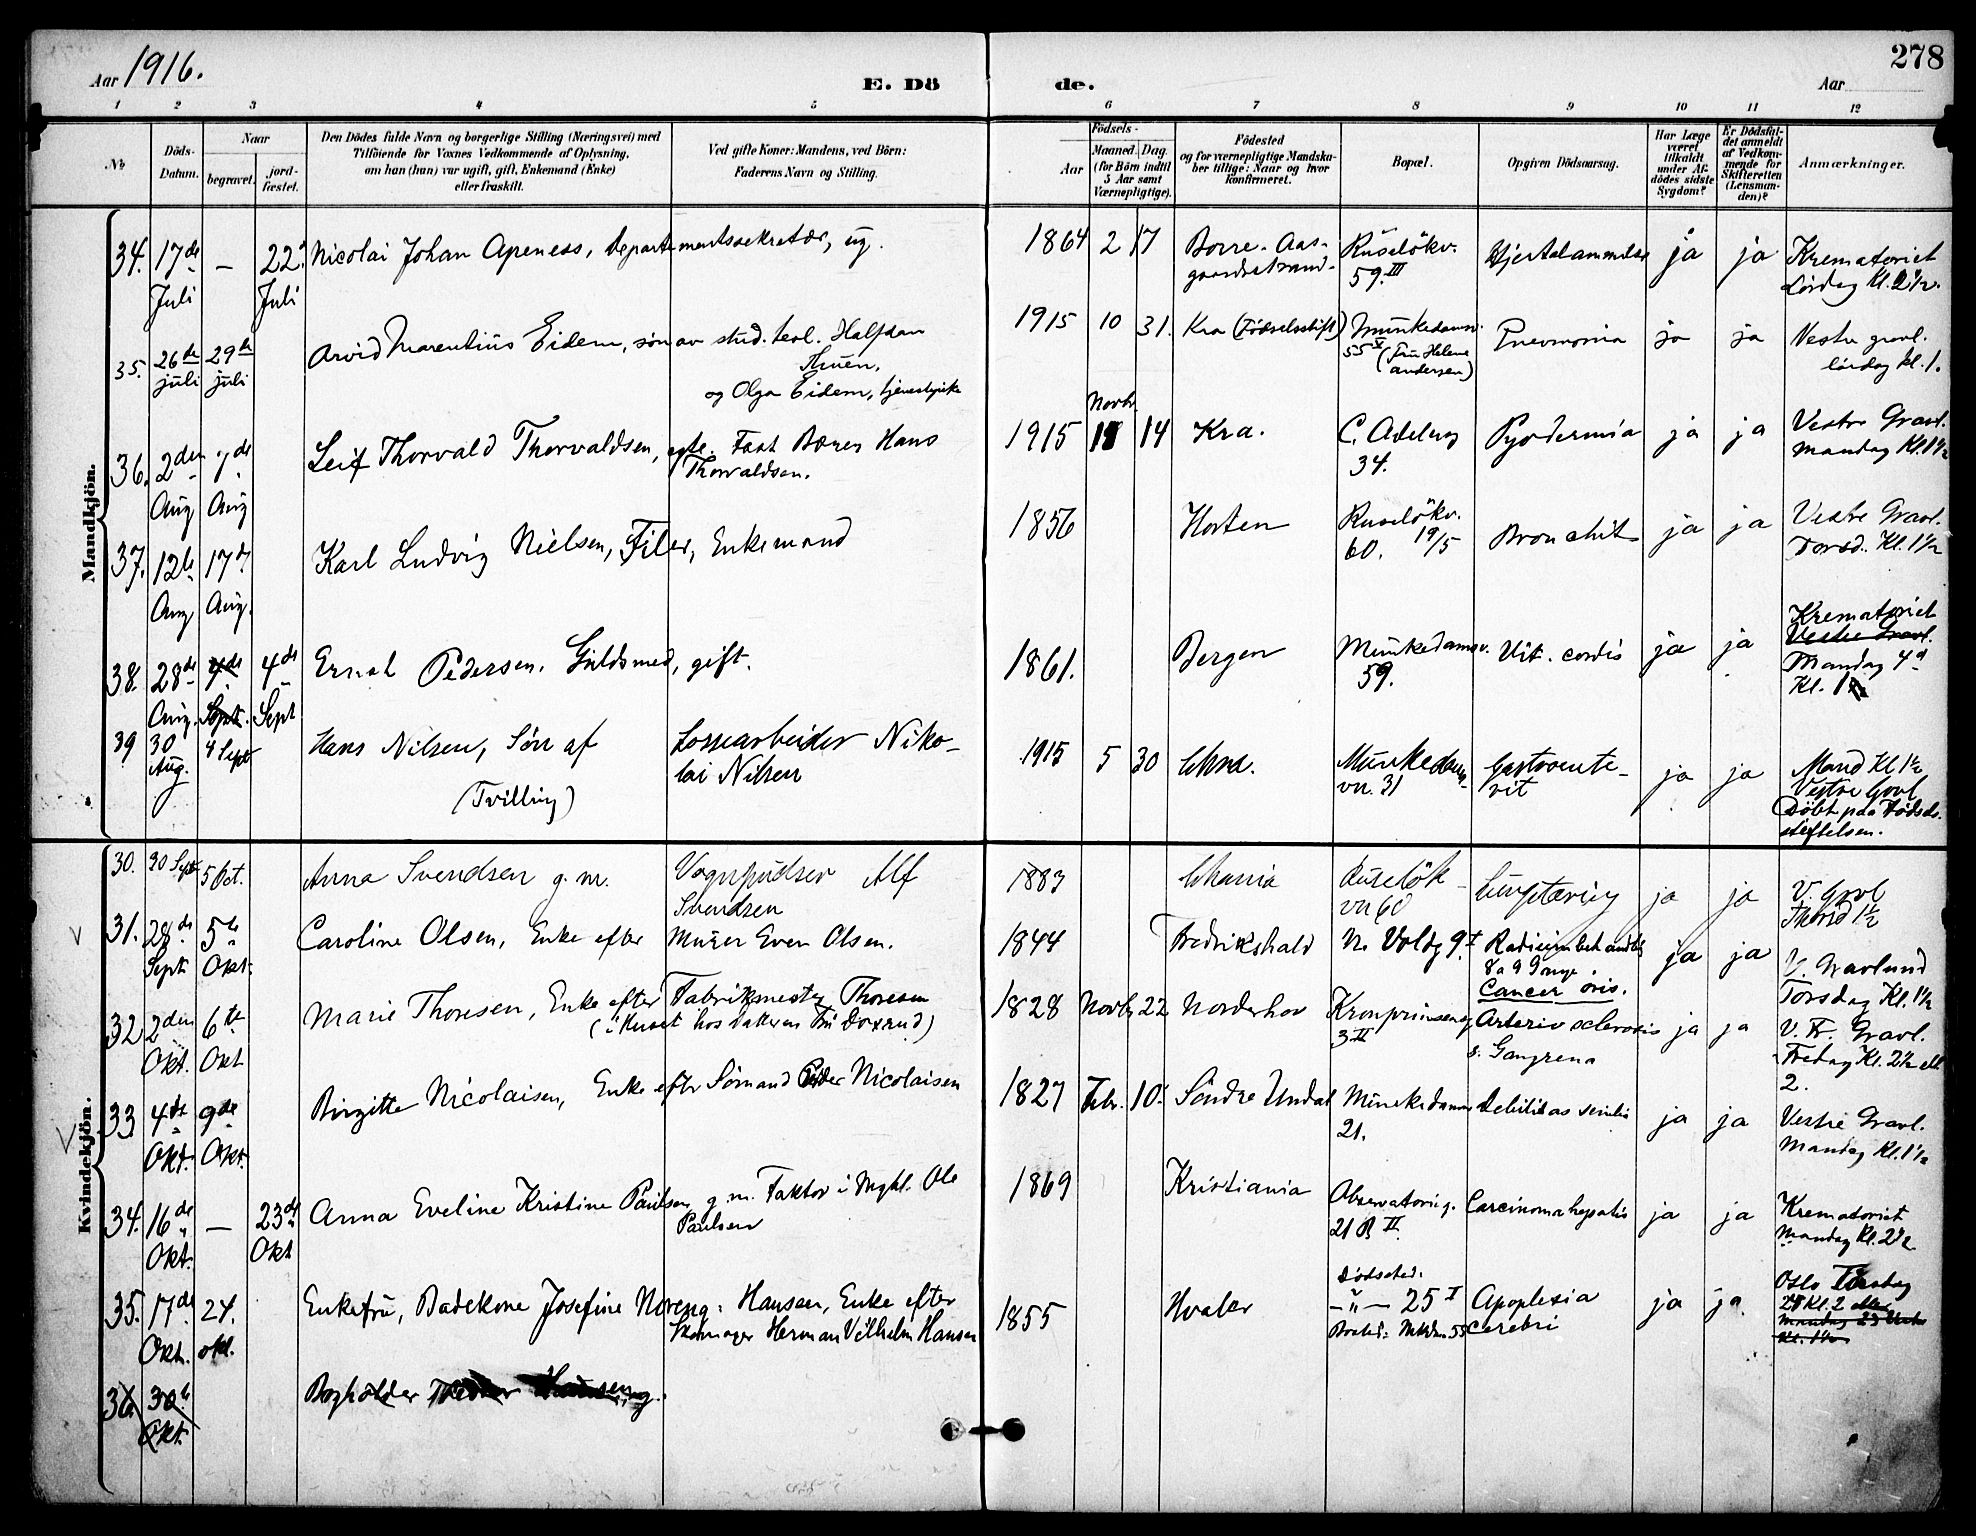 Aar 1916.
E. Dö
de.
Aar
278
1 2 3 4 5 6 7 8 9 10 11 12
No
Döds-Datum.
Naar
begravet.
jord-fæstet.
Den Dödes fulde Navn og borgerlige Stilling (Næringsvei) med
Tilföiende for Voxnes Vedkommende af Oplysning,
om han (hun) var ugift, gift, Enkemand (Enke)
eller fraskilt.
Ved gifte Koner: Mandens, ved Börn:
Faderens Navn og Stilling.
Aar
Födsels-
Maaned. Dag.
(for Börn indtil
5 Aar samt
Værnepligtige).
Födested
og for værnepligtige Mandska-
ber tillige: Naar og hvor
konfirmeret.
Bopæl.
Opgiven Dödsaarsag.
Har Læge
været
tilkaldt
under Af-
dödes sidste
Sygdom?
Er Dödsfal-
det anmeldt
af Vedkom-
mende for
Skifteretten
(Lensman-
den)?
Anmærkninger.
Mandkjön.
34. 17de Juli — 22. Juli Nicolai Johan Apeness, Departementssekretær, ug. 1864 2 17 Borre. Aas-
gaardsstrand. Ruselökv. 59.III Hjertelammelse ja ja Krematoriet
Lördag Kl. 2 1/2.
35. 26de juli 29de juli Arvid Marentius Eidem, søn av stud. teol. Halfdan
Thuen,
og Olga Eidem, tjenestepike 1915 10 31. Kra (Fødselsstift) Munkedamsv.
55 V (Fru Helene
Andersen) Pnevmonia ja ja Vestre gravl.
lördag kl. 1.
36. 2den Aug 7de Aug Leif Thorvald Thorvaldsen, egte. Fast Bærer Hans
Thorvaldsen. 1915 Novbr. 11 14 Kra. C. Adelers
34. Pyodermia ja ja Vestre Gravl.
Mandag Kl. 1 1/2
37. 12te Aug 17de Aug. Karl Ludvig Nielsen, Filer, Enkemand 1856 Horten Ruselökv.
60. 19/5 Bronchit ja ja Vestre Gravl.
Torsd. Kl. 1 1/2
38. 28de Aug. 4de Sept. 4de Sept Ernst Pedersen. Guldsmed, gift. 1861. Bergen Munkedamsv.
59. Vit. cordis ja ja Krematoriet
Vestre Gravl.
Mandag 4d
Kl. 1
39 30 Aug. 4 Sept Hans Nilsen, Sön af Lossearbeider Niko-
lai Nilsen
(Tvilling) 1915 5 30 Chra. Munkedams-
vn. 31 Gastroente-
rit ja ja Mand Kl 1 1/2
Vestre Gravl
Döbt paa Fødsels-
stiftelsen.
Kvindekjön.
30. 30 Sept 5 Oct. Anna Svendsen g. m. Vognpudser Alf
Svendsen 1883 Chania Ruselök-
vn 60 Lungetæring ja ja V. Gravl
Thorsd 1 1/2
31. 28de Sept 5te Okt. Caroline Olsen, Enke efter Murer Even Olsen. 1844 Fredrikshald N. Voldg 9.I Radiumbehandlet
8 a 9 Gange.
Cancer oris. ja ja V. Gravlund
Torsdag Kl. 1 1/2
32 2den Okt. 6te Okt Marie Thoresen, Enke efter Fabrikmester Thoresen
(i huset hos datteren Fru Doxrud) 1828 Novbr 22 Norderhov Kronprinsensg
3 II Arteriosclerosis
s. Gangrena ja ja V. Fr. Gravl.
Fredag Kl. 2 1/2 ell.
2.
33 4de Okt. 9de Okt. Birgitte Nicolaisen, Enke efter Sömand Peder Nicolaisen 1827 Febr. 10. Söndre Undal Munkedamsv
21. Debilitas senilis ja ja Vestre Gravl.
Mandag Kl. 1 1/2
34. 16de Okt. — 23de Okt Anna Eveline Kristine Paulsen g. m. Faktor i Mgbl. Ole
Paulsen 1869 Kristiania Observatorieg.
21 B II. Carcinoma hepatis ja ja Krematoriet
Mandag Kl. 2 1/2
35. 17de Okt. 24. okt. Enkefru, Badekone Josefine Noreng: Hansen, Enke efter
Skomager Herman Vilhelm Hansen 1855 Hvaler Dödssted:
— " — 25 I
Bosted: Mkdm. 55 Apoplexia
cerebri ja ja. Oslo Tirsdag
Kl. 2 eller
36. 30te Okt. Bogholder